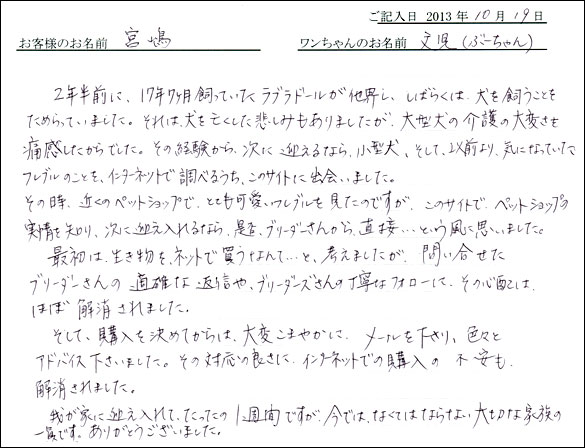 ご記入日 2013 年 10 月 19 日
お客様のお名前 宮嶋 ワンちゃんのお名前 文児(ぶーちゃん)
2年半前に、17年7ヶ月飼っていたラブラドールが他界し、しばらくは、犬を飼うことを
ためらっていました。それは、犬を亡くした悲しみもありましたが、大型犬の介護の大変さを
痛感したからでした。その経験から、次に迎えるなら、小型犬、そして、以前より、気になっていた
フレブルのことを、インターネットで調べるうち、このサイトに出会いました。
その時、近くのペットショップで、とても可愛いフレブルを見たのですが、このサイトで、ペットショップの
実情を知り、次に迎え入れるなら、是非、ブリーダーさんから、直接…という風に思いました。
最初は、生き物を、ネットで買うなんて…と、考えましたが、問い合せた
ブリーダーさんの 適確な返信や、ブリーダーズさんの丁寧なフォローに、その心配は、
ほぼ 解消されました。
そして、購入を決めてからは、大変こまやかに、メールを下さり、色々と
アドバイス下さいました。その対応の良さに、インターネットでの購入の 不安も、
解消されました。
我が家に迎え入れて、たったの 1週間ですが、今では、なくてはならない大切な家族の
一員です。ありがとうございました。